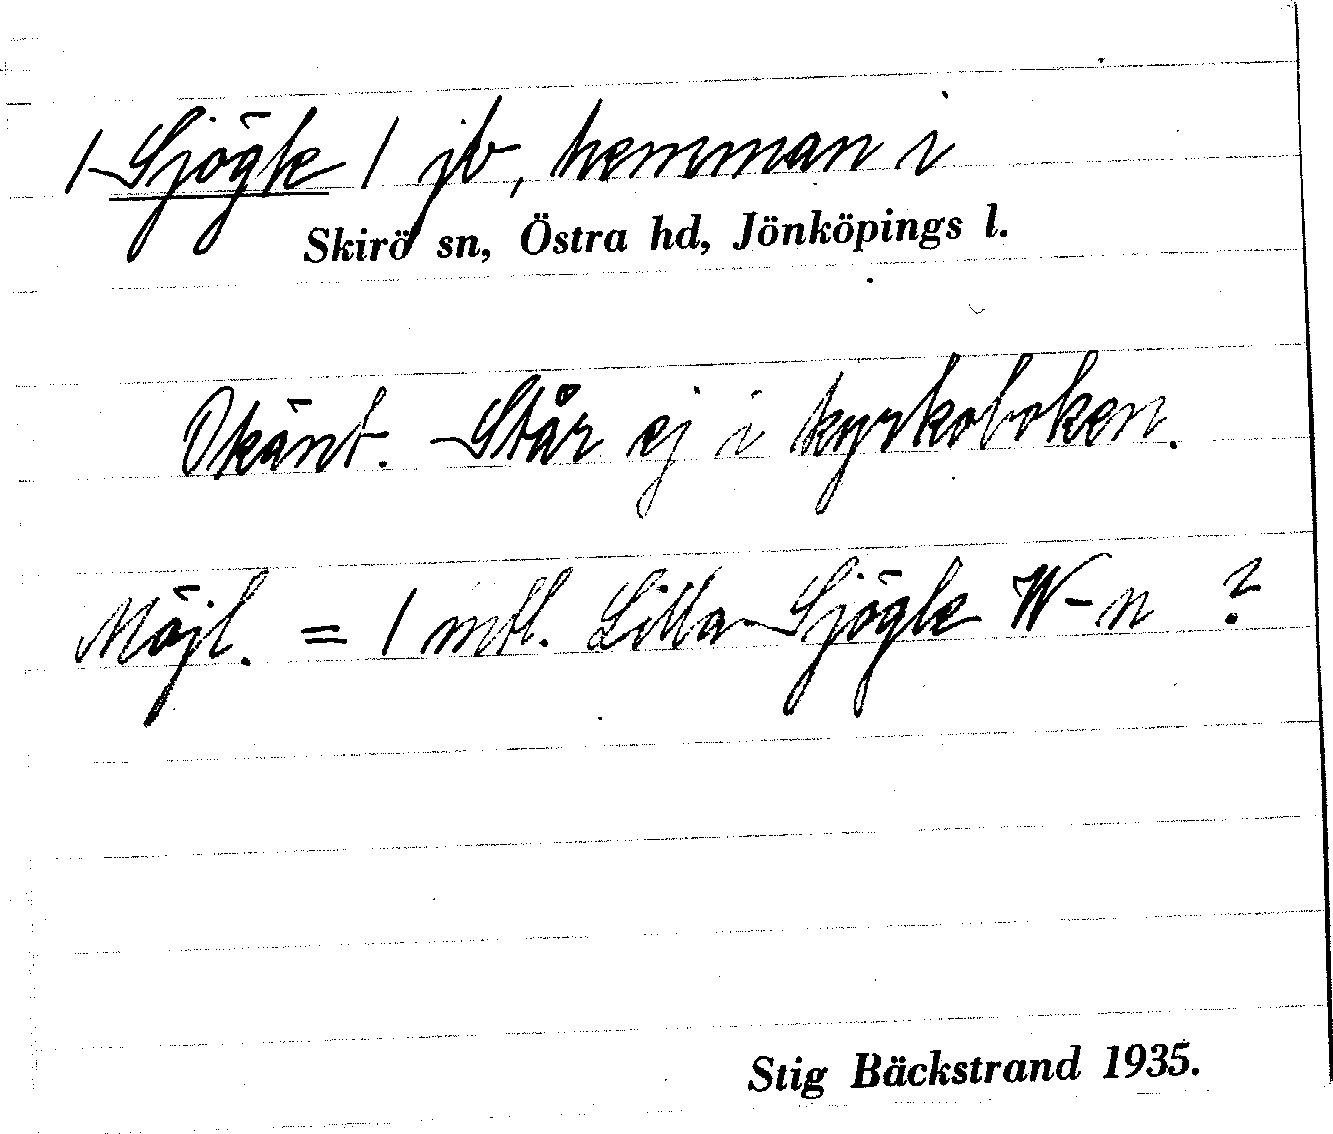 / Sjögle / jb, hemman i
Skirö sn, Östra hd, Jönköpings l.
Okänt. Står ej i kyrkoboken.
Möjl. = / mtl. Lilla Sjögle W-n ?
Stig Bäckstrand 1935.